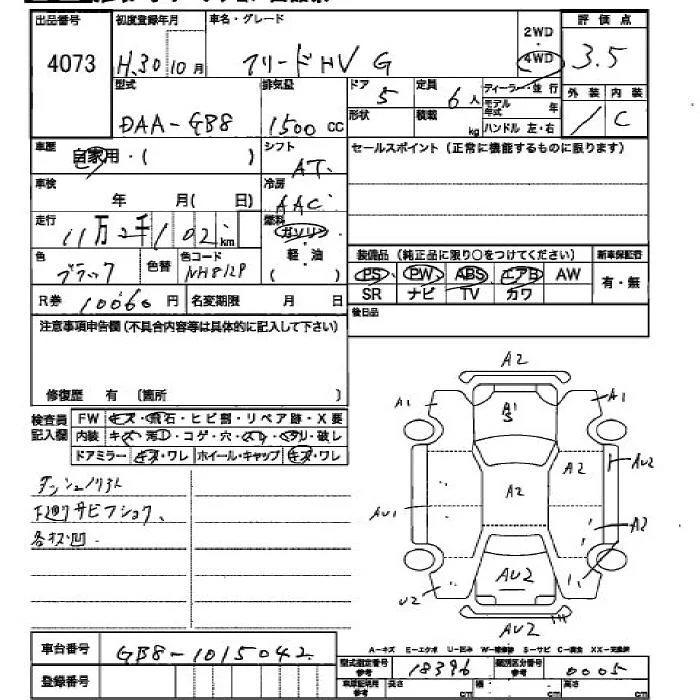 出品番号 初度登録年月 車名・グレード 2WD 評価点
4073 H.30 10月 フリードHV G 4WD 3.5
型式 排気量 ドア 5 定員 6人 ディーラー・並行 外装 内装
DAA-GB8 1500cc 形状 積載 kg モデル年式 年 / C
ハンドル 左・右
車歴 自家用・( ) シフト AT. セールスポイント(正常に機能するものに限ります)
車検 年 月( 日) 冷房 AAC
走行 11万2千102km 燃料 ガソリン
軽・油 装備品(純正品に限り○をつけてください) 新車保証書
色 ブラック 色替 色コード NH812P ( ) PS PW ABS エアB AW 有・無
R券 10060円 名変期限 月 日 SR ナビ TV カワ
注意事項申告欄(不具合内容等は具体的に記入して下さい) 後日品
修復歴 有 〔箇所 〕
検査員記入欄 FW キズ・飛石・ヒビ割・リペア跡・X要
内装 キズ・汚れ・コゲ・穴・スレ・ヘタリ・破レ
ドアミラー キズ・ワレ ホイール・キャップ キズ・ワレ
下廻サビフショク、
各板凹.
A2
A1 A1
A1
S
AU2
A2
A2
AU1 A2
U2 AU2
AU2
車台番号 GB8-1015042
A-キズ E-エクボ U-凹み W-補修跡 S-サビ C-腐食 XX-交換済
型式指定番号 参考 18396 類別区分番号 参考 0005
登録番号 車庫証明用 参考 長さ cm 幅 cm 高さ cm